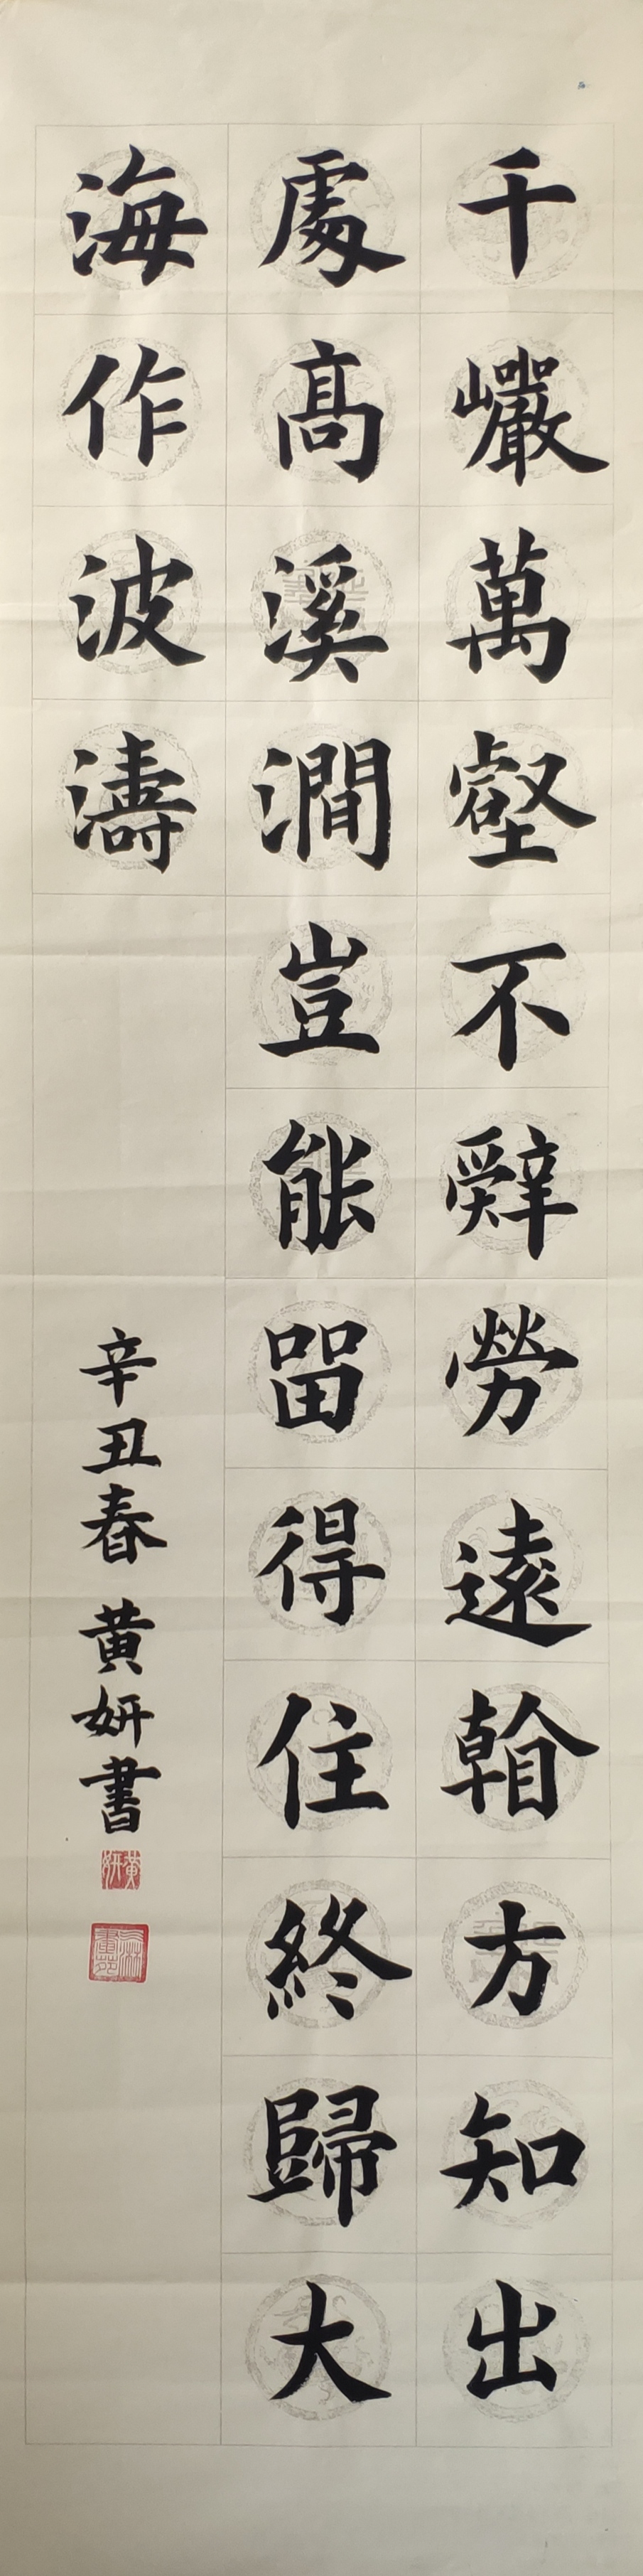 千巗萬壑不辭勞遠看方知出
處髙溪澗豈能留得住終歸大
海作波濤
辛丑春 黄妍書
黄妍